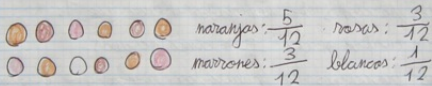 naranjas: 5/12 rosas: 3/12
marrones: 3/12 blancos: 1/12